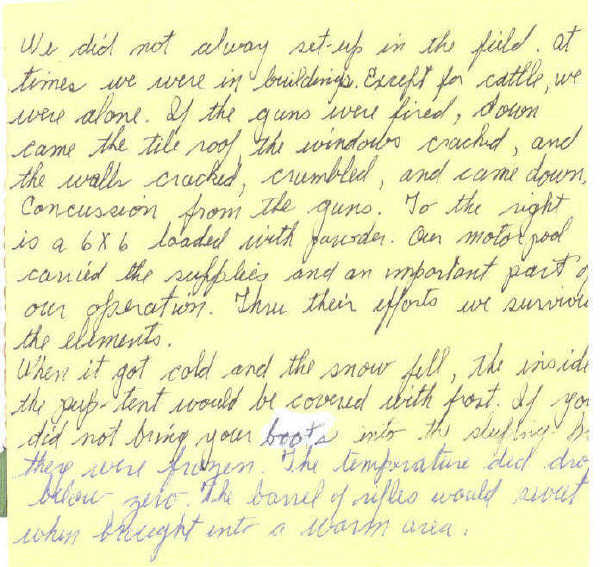 We did not alway set-up in the field. At
times we were in buildings. Except for cattle, we
were alone. If the guns were fired, down
came the tile roof, the windows cracked, and
the walls cracked, crumbled, and came down.
Concussion from the guns. To the right
is a 6X6 loaded with powder. Our motor pool
carried the supplies and an important part o
our operation. Thru their efforts we surviv
the elements.
When it got cold and the snow fell, the inside
the pup-tent would be covered with frost. If you
did not bring your boots into the sleeping
they were frozen. The temperature did dro
below zero. The barrel of rifles would sweat
when brought into a warm area.